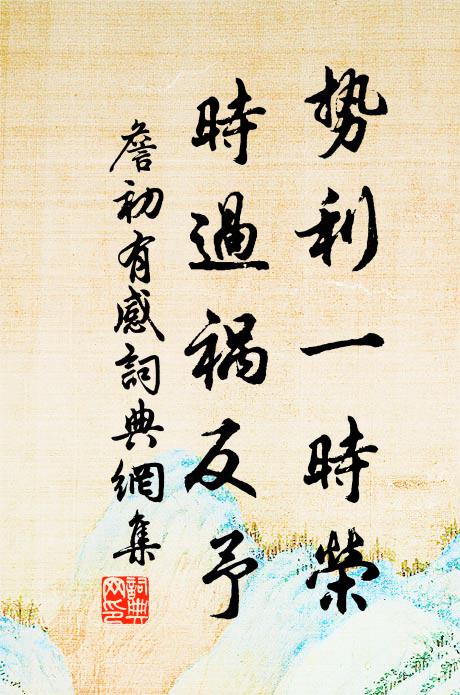 勢利一時榮
時過禍反予
詹初有感詞典網集
詞典
網印